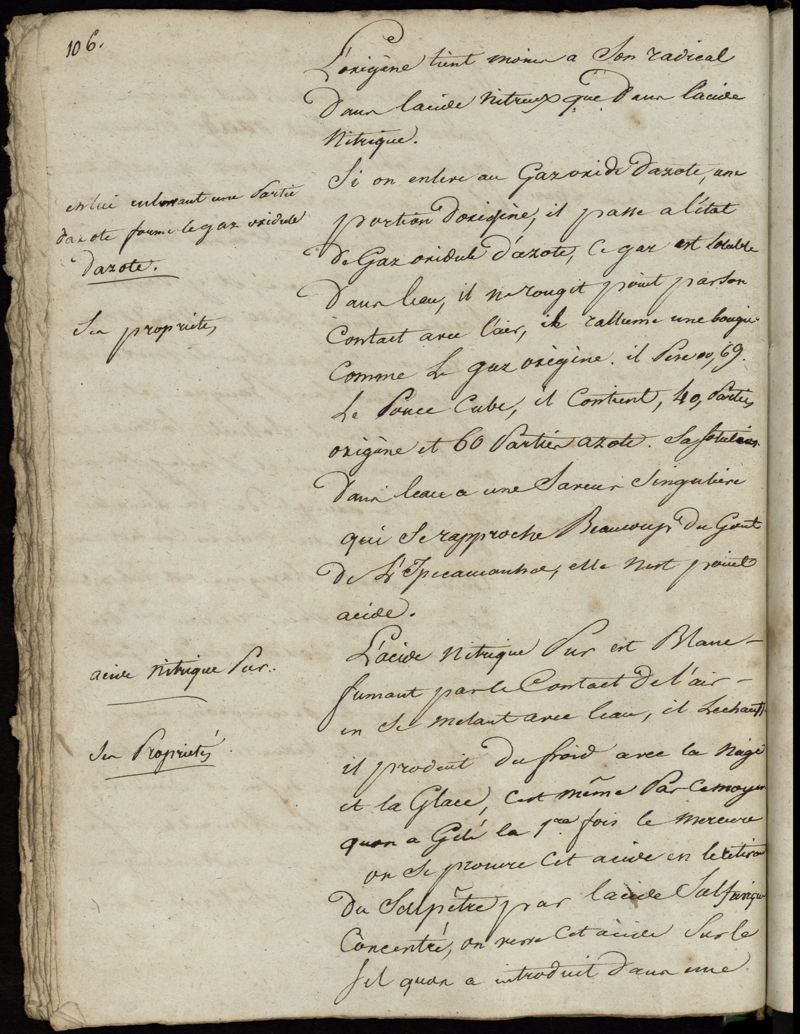 106.
L'oxigène tient moins a Son radical
Dans lacide Nitreux que Dans lacide
Nitrique.
Si on enleve au Gaz oxide Dazote, une
portion D'oxigène, il passe a l'état
De Gaz oxidule d'azote, Ce gaz est Soluble
Dans leau, il ne rougit point par son
Contact avec l'air, il rallume une bougie
Comme Le gaz oxigène. il Pese 00, 69.
Le Pouce Cube, il Contient, 40, Parties
oxigène et 60 Parties azote. Sa Solution
Dans leau a une Saveur Singuliere
qui Se rapproche Beaucoup Du Gout
De L'Ipecacuanha, elle n'est point
acide.
L'acide Nitrique Pur est Blanc
fumant par le Contact De l'air
en Se mêlant avec leau, il Sechauffe
il produit Du froid avec la Neige
et la Glace, Cest même Par Ce moyen
quon a Gelé la 1re fois le mercure
on Se procure Cet acide en le retirant
Du Salpêtre par lacide Sulfurique
Concentré, on verse Cet acide Sur le
Sel quon a introduit Dans une
en lui enlevant une Partie
Dazote forme le gaz oxidule
Dazote.
Ses proprietés
acide Nitrique Pur.
Ses Proprietés